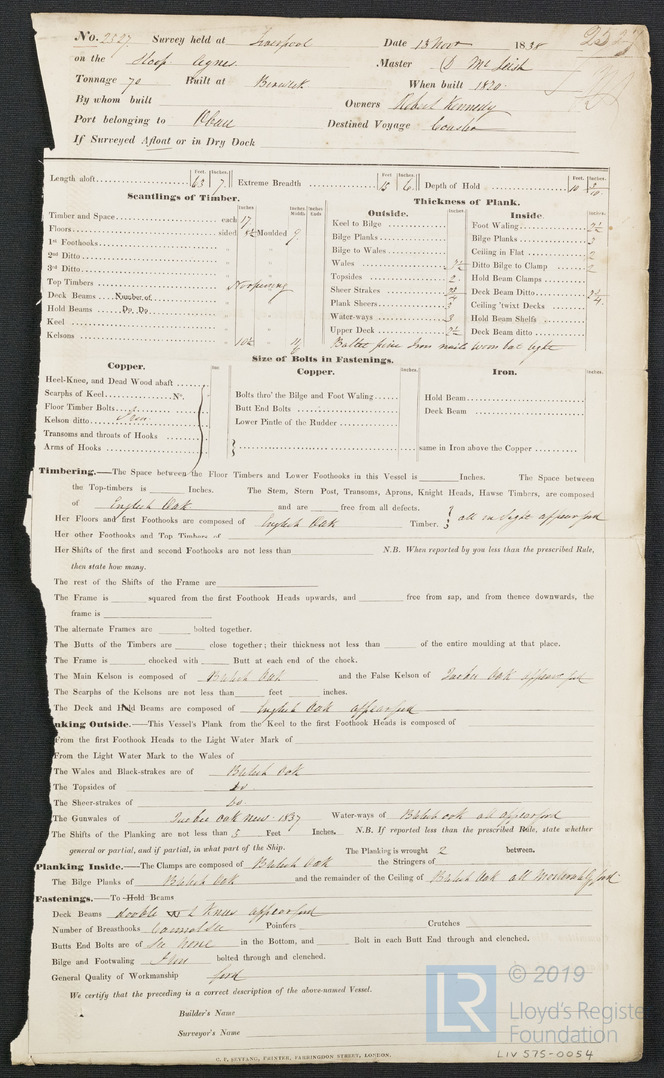 No. 2527 Survey held at Liverpool Date 13 Novr 1838 2527
on the Sloop Agnes Master D McLeish
Tonnage 70 Built at Berwick When built 1820
By whom built Owners Robert Kennedy
Port belonging to Oban Destined Voyage Coaster
If Surveyed Afloat or in Dry Dock
Length aloft Feet. 63 Inches. 7 Extreme Breadth Feet. 18 Inches. 6 Depth of Hold Feet. 10 Inches.
Scantlings of Timber.
Timber and Space each 17
Floors sided 8½ Moulded 9
1st Foothooks
2nd Ditto
3rd Ditto
Top Timbers No opening
Deck Beams Number of
Hold Beams Do. Do.
Keel
Kelsons 10½
Thickness of Plank.
Outside.
Keel to Bilge
Bilge Planks
Bilge to Wales
Wales
Topsides 2
Sheer Strakes
Plank Sheers
Water-ways 3
Upper Deck 2½
Inside.
Foot Waling 2½
Bilge Planks 3
Ceiling in Flat 2
Ditto Bilge to Clamp 2
Hold Beam Clamps
Deck Beam Ditto
Ceiling 'twixt Decks
Hold Beam Shelfs
Deck Beam ditto
Baltic pine Iron nails worn but tight
Size of Bolts in Fastenings.
Copper.
Heel-Knee, and Dead Wood abaft
Scarphs of Keel No.
Floor Timber Bolts
Kelson ditto Iron
Transoms and throats of Hooks
Arms of Hooks
Copper.
Bolts thro' the Bilge and Foot Waling
Butt End Bolts
Lower Pintle of the Rudder
Iron.
Hold Beam
Deck Beam
same in Iron above the Copper
Timbering.—The Space between the Floor Timbers and Lower Foothooks in this Vessel is Inches. The Space between
the Top-timbers is Inches. The Stem, Stern Post, Transoms, Aprons, Knight Heads, Hawse Timbers, are composed
of English Oak and are free from all defects.
Her Floors and first Foothooks are composed of English Oak Timber. all in sight appear good
Her other Foothooks and Top Timbers of
Her Shifts of the first and second Foothooks are not less than N.B. When reported by you less than the prescribed Rule,
then state how many.
The rest of the Shifts of the Frame are
The Frame is squared from the first Foothook Heads upwards, and free from sap, and from thence downwards, the
frame is
The alternate Frames are bolted together.
The Butts of the Timbers are close together; their thickness not less than of the entire moulding at that place.
The Frame is chocked with Butt at each end of the chock.
The Main Kelson is composed of British Oak and the False Kelson of Quebec Oak appear good
The Scarphs of the Kelsons are not less than feet inches.
The Deck and Hold Beams are composed of English Oak appear good
nking Outside.—This Vessel's Plank from the Keel to the first Foothook Heads is composed of
From the first Foothook Heads to the Light Water Mark of
From the Light Water Mark to the Wales of
The Wales and Black-strakes are of British Oak
The Topsides of do
The Sheer-strakes of do
The Gunwales of Quebec Oak new 1837 Water-ways of British oak all appear good
The Shifts of the Planking are not less than 5 Feet Inches. N.B. If reported less than the prescribed Rule, state whether
general or partial, and if partial, in what part of the Ship. The Planking is wrought 2 between.
Planking Inside.—The Clamps are composed of British Oak the Stringers of
The Bilge Planks of British Oak and the remainder of the Ceiling of British Oak all Moderately good
Fastenings.—To Hold Beams
Deck Beams double W I Knees appear good
Number of Breasthooks Cannot see Pointers Crutches
Butts End Bolts are of See none in the Bottom, and Bolt in each Butt End through and clenched.
Bilge and Footwaling Iron bolted through and clenched.
General Quality of Workmanship good
We certify that the preceding is a correct description of the above-named Vessel.
Builder's Name
Surveyor's Name
C. F. SEYFANG, PRINTER, FARRINGDON STREET, LONDON.
LR © 2019
Lloyd's Register
Foundation
LIV 575-0054